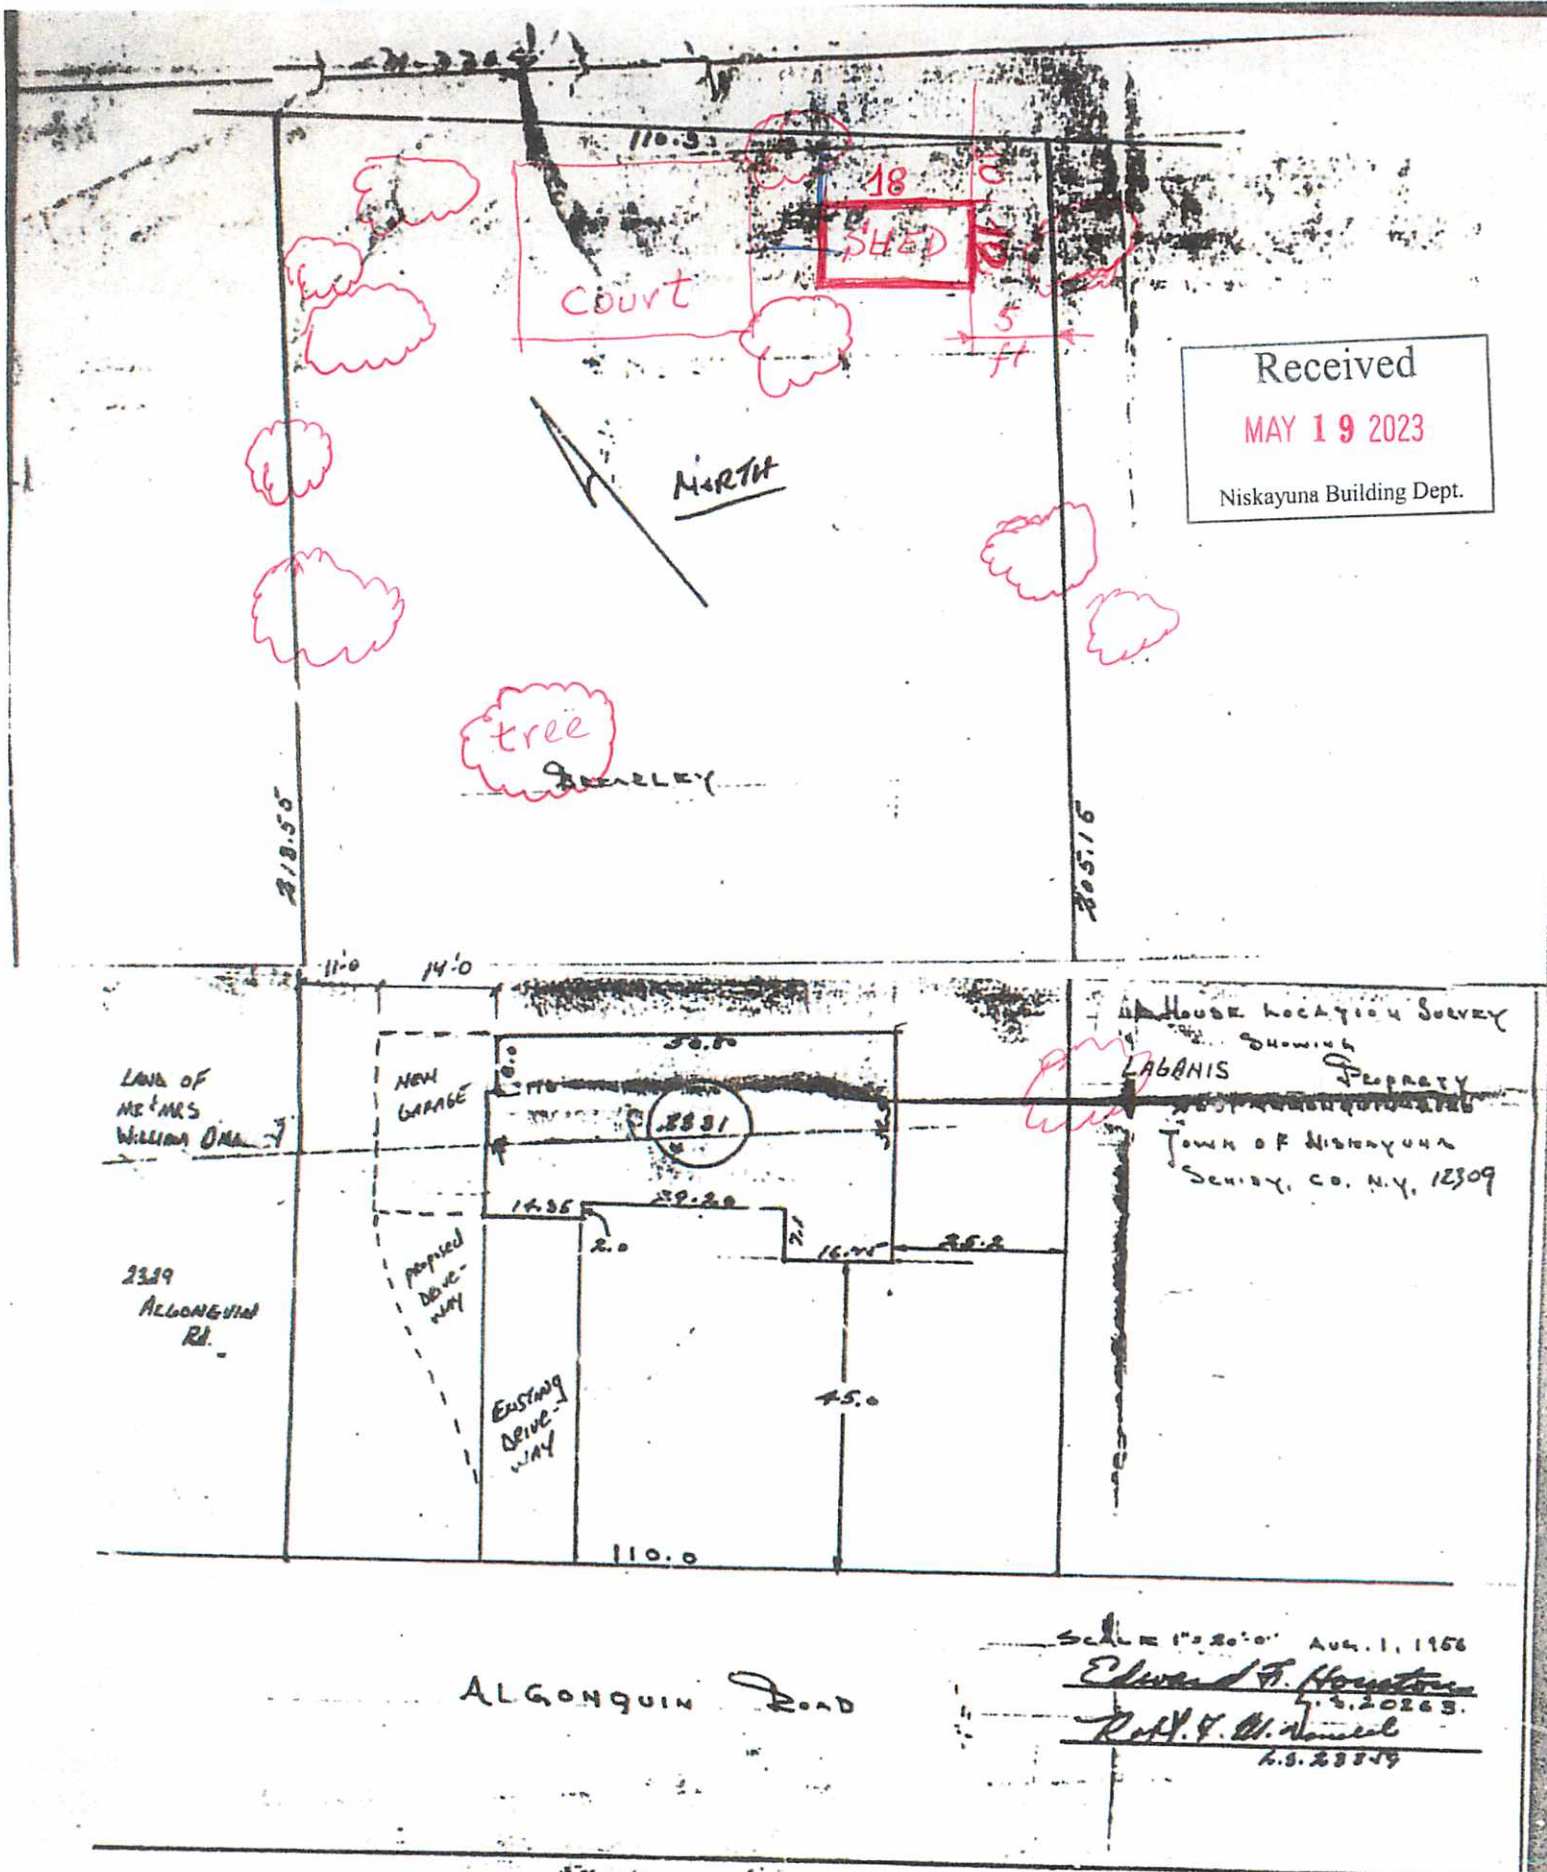 110.3
18
10
SHED
12
court
5
ft
Received
MAY 19 2023
Niskayuna Building Dept.
NORTH
tree
218.55
205.15
11'0
14'0
House Location Survey
Showing
LAGANIS Property
Town of Niskayuna
Schdy. Co. N.Y. 12309
LAND OF
MR & MRS
WILLIAM
NEW
GARAGE
50.80
2331
14.35
29.20
2.0
7.1
16.75
25.2
proposed
DRIVE-
WAY
2329
ALGONQUIN
Rd.
EXISTING
DRIVE-
WAY
45.0
110.0
ALGONQUIN ROAD
SCALE 1"=20'-0" AUG. 1, 1956
Edward F. Houston
L.S. 20263.